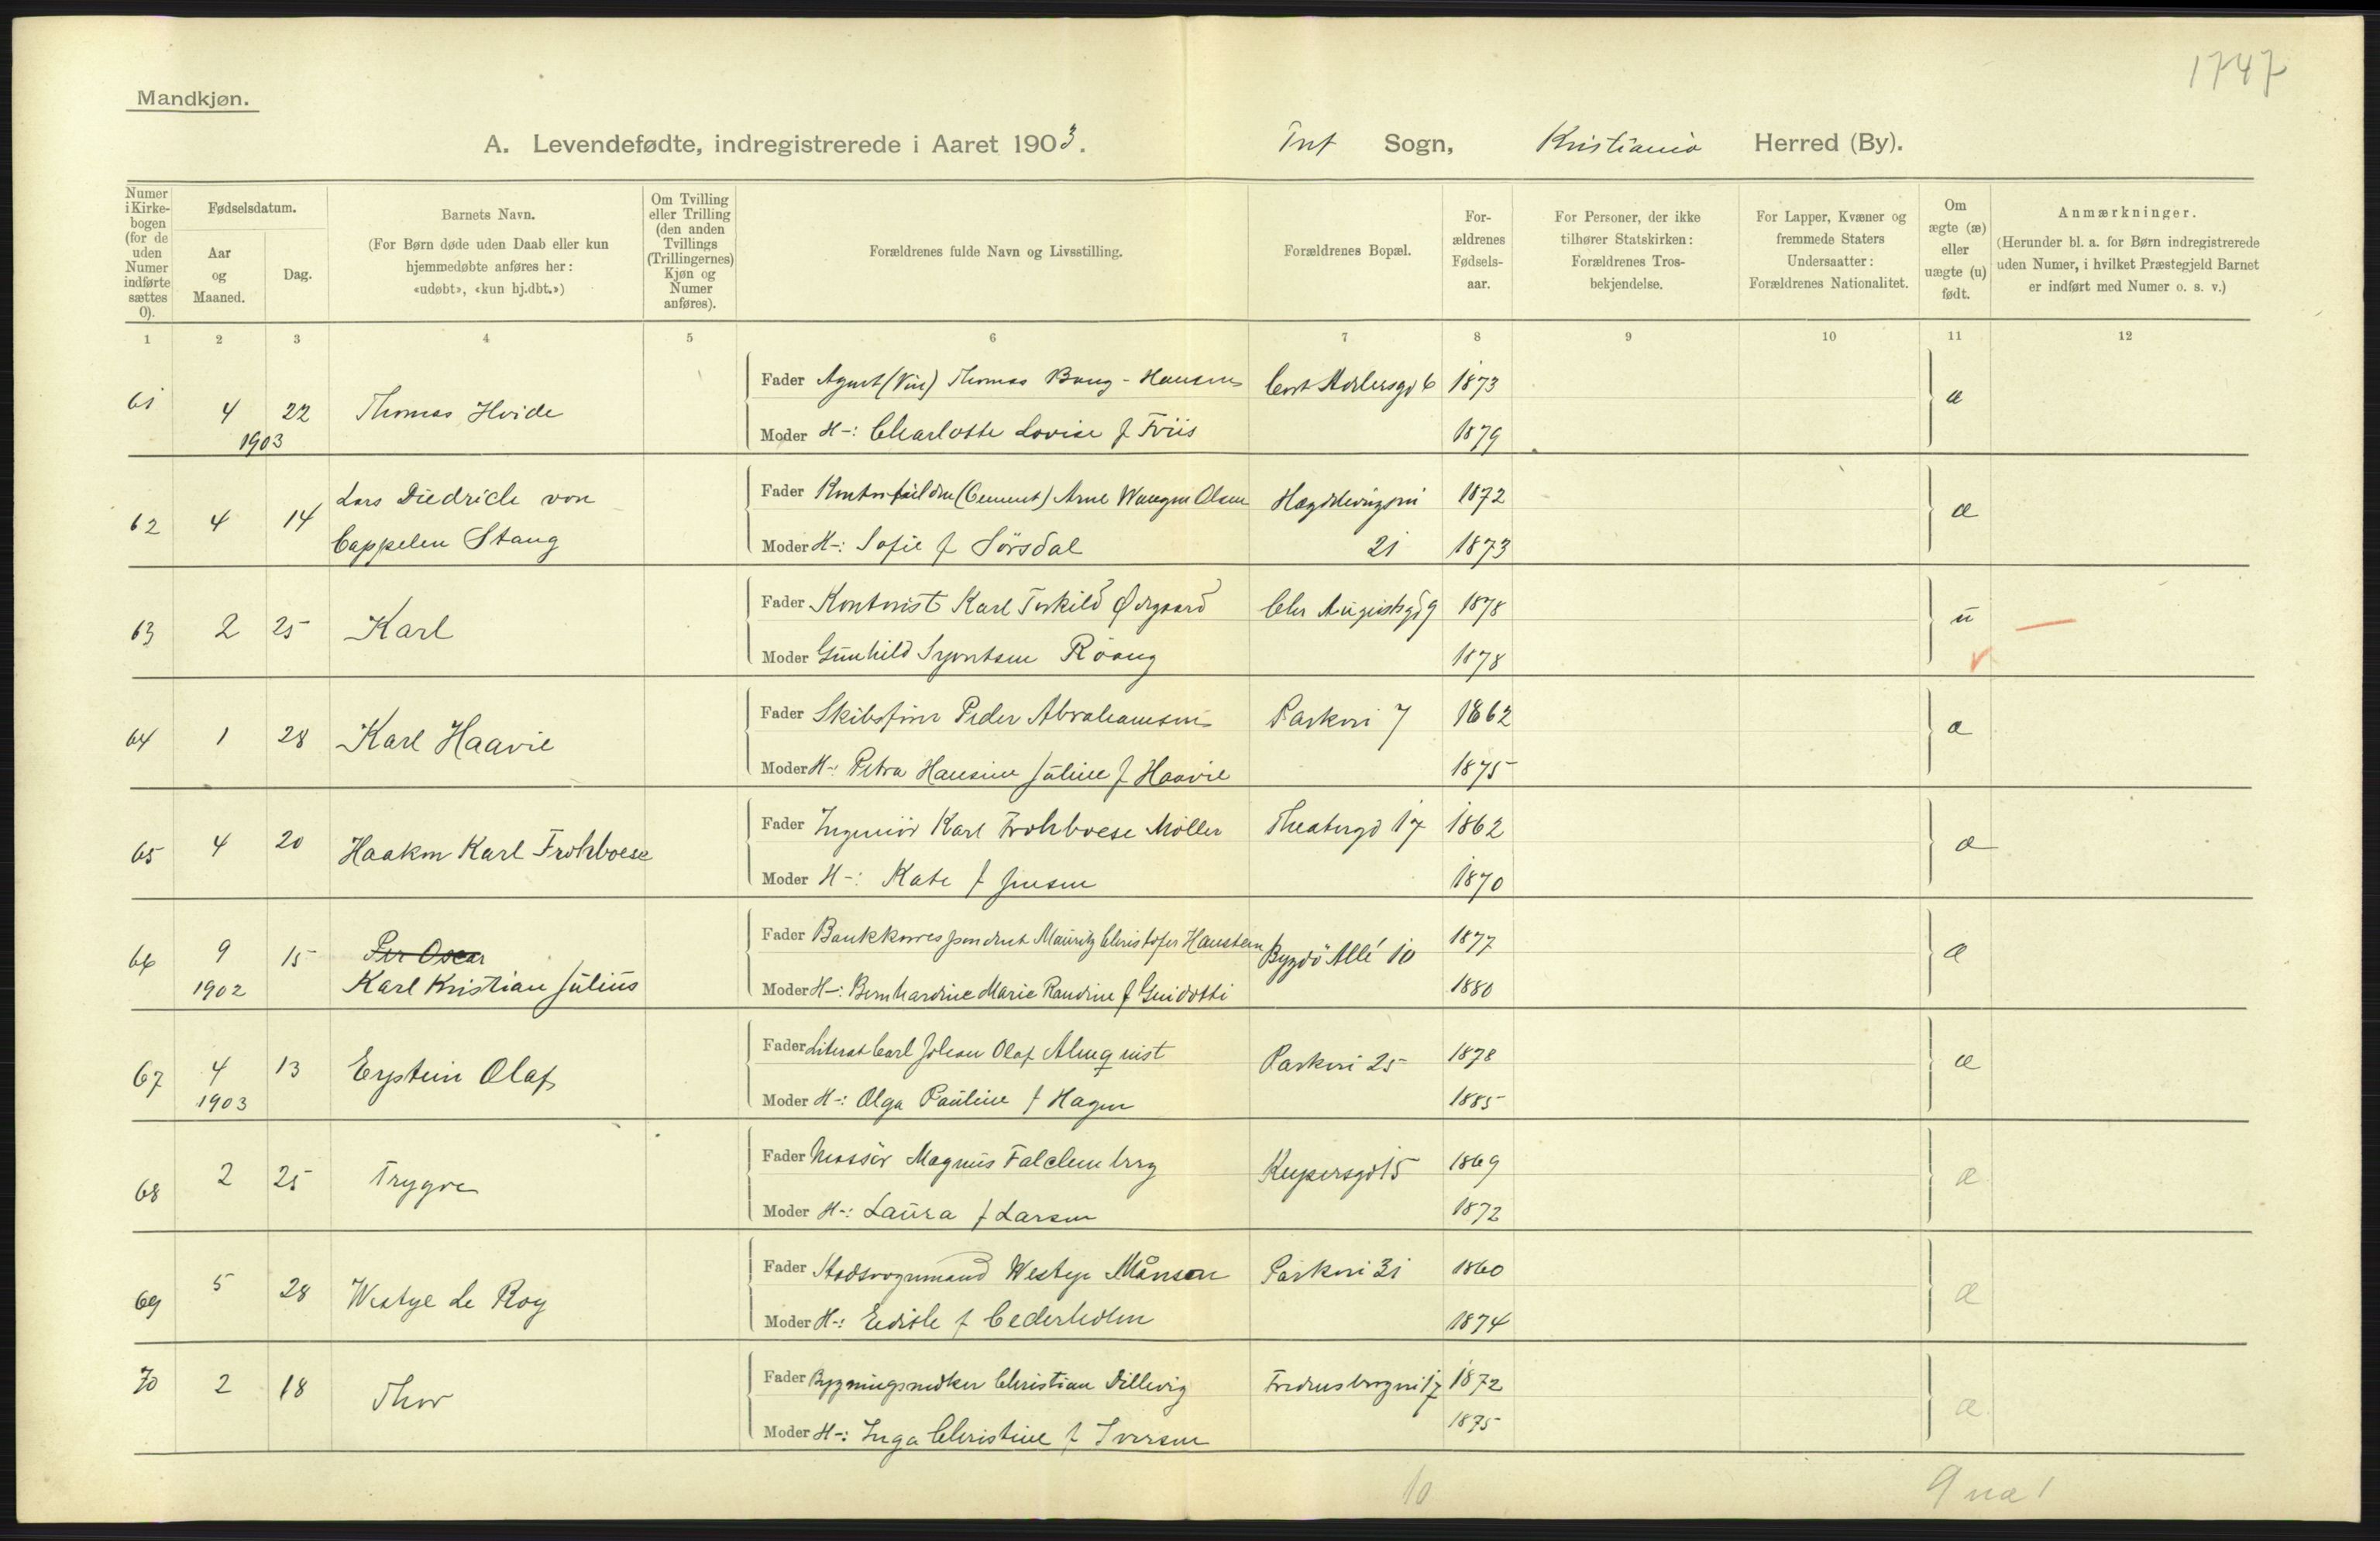 1747
Mandkjøn.
A. Levendefødte, indregistrerede i Aaret 1903. Tref Sogn, Kristiania Herred (By).
Numer i Kirkebogen (for de uden Numer indførte sættes 0).
Fødselsdatum.
Aar og Maaned.
Dag.
Barnets Navn.
(For Børn døde uden Daab eller kun hjemmedøbte anføres her: «udøbt», «kun hj.dbt.»)
Om Tvilling eller Trilling (den anden Tvillings (Trillingernes) Kjøn og Numer anføres).
Forældrenes fulde Navn og Livsstilling.
Forældrenes Bopæl.
Forældrenes Fødselsaar.
For Personer, der ikke tilhører Statskirken: Forældrenes Trosbekjendelse.
For Lapper, Kvæner og fremmede Staters Undersaatter: Forældrenes Nationalitet.
Om ægte (æ) eller uægte (u) født.
Anmærkninger.
(Herunder bl. a. for Børn indregistrerede uden Numer, i hvilket Præstegjeld Barnet er indført med Numer o. s. v.)
1 2 3 4 5 6 7 8 9 10 11 12
61 4 1903 22 Thomas Hvide
Fader Agent (Vin) Thomas Bang-Hansen Cort Adelersgd 6 1873 æ
Moder H-: Charlotte Lovise f Friis 1879
62 4 14 Lars Diedrich von Cappelen Stang
Fader (Cement) Arne Wangen Olsen 1872 æ
Moder H-: Sofie f Sörsdal 21 1873
63 2 25 Karl
Fader Kontorist Karl Torkild Ørgaard Chr Augustsgd 9 1878 u
Moder Gunhild Syvertsen Röang 1878
64 1 28 Karl Haavie
Fader Skibsförer Peder Abrahamsen Parkvei 7 1862 æ
Moder H-: Petra Hansine Juline f Haavie 1875
65 4 20 Haakon Karl Frohboese
Fader Ingeniör Karl Frohboese Möller Theatergd 17 1862 æ
Moder H-: Kate f Jensen 1870
66 9 1902 15 Per Oscar Karl Kristian Julius
Fader Bankkorrespondent Mauritz Christofer Hansteen Bygdö Allé 10 1877 æ
Moder H-: Bernhardine Marie Randine f Guidotti 1880
67 4 1903 13 Eystein Olaf
Fader Literat Carl Johan Olaf Almquist Parkvei 25 1878 æ
Moder H-: Olga Pauline f Hagen 1885
68 2 25 Trygve
Fader Massör Magnus Falchenberg Keysersgd 15 1869 æ
Moder H-: Laura f Larsen 1872
69 5 28 Westye Le Roy
Fader Stadsvognmand Westye Månson Parkvei 31 1860 æ
Moder H-: Edith f Cederholm 1874
70 2 18 Thor
Fader Bygningssnedker Christian Dillevig Fredensborgvei 17 1872 æ
Moder H-: Inga Christine f Iversen 1875
10 9 æ 1